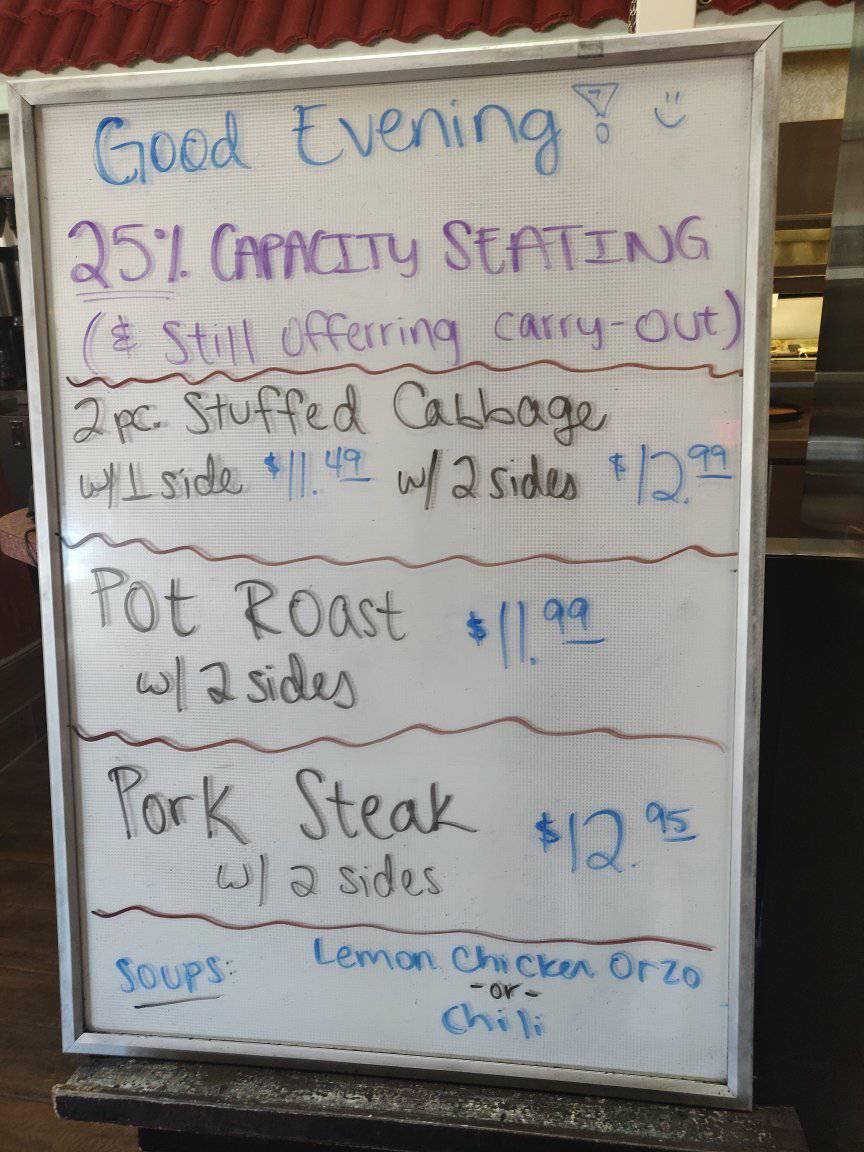 Good Evening! :)
25% CAPACITY SEATING
(& Still Offerring carry-out)
2 pc. Stuffed Cabbage
w/ 1 side $11.49 w/ 2 sides $12.99
Pot Roast $11.99
w/ 2 sides
Pork Steak $12.95
w/ 2 sides
Soups: Lemon Chicken Orzo
-or-
Chili